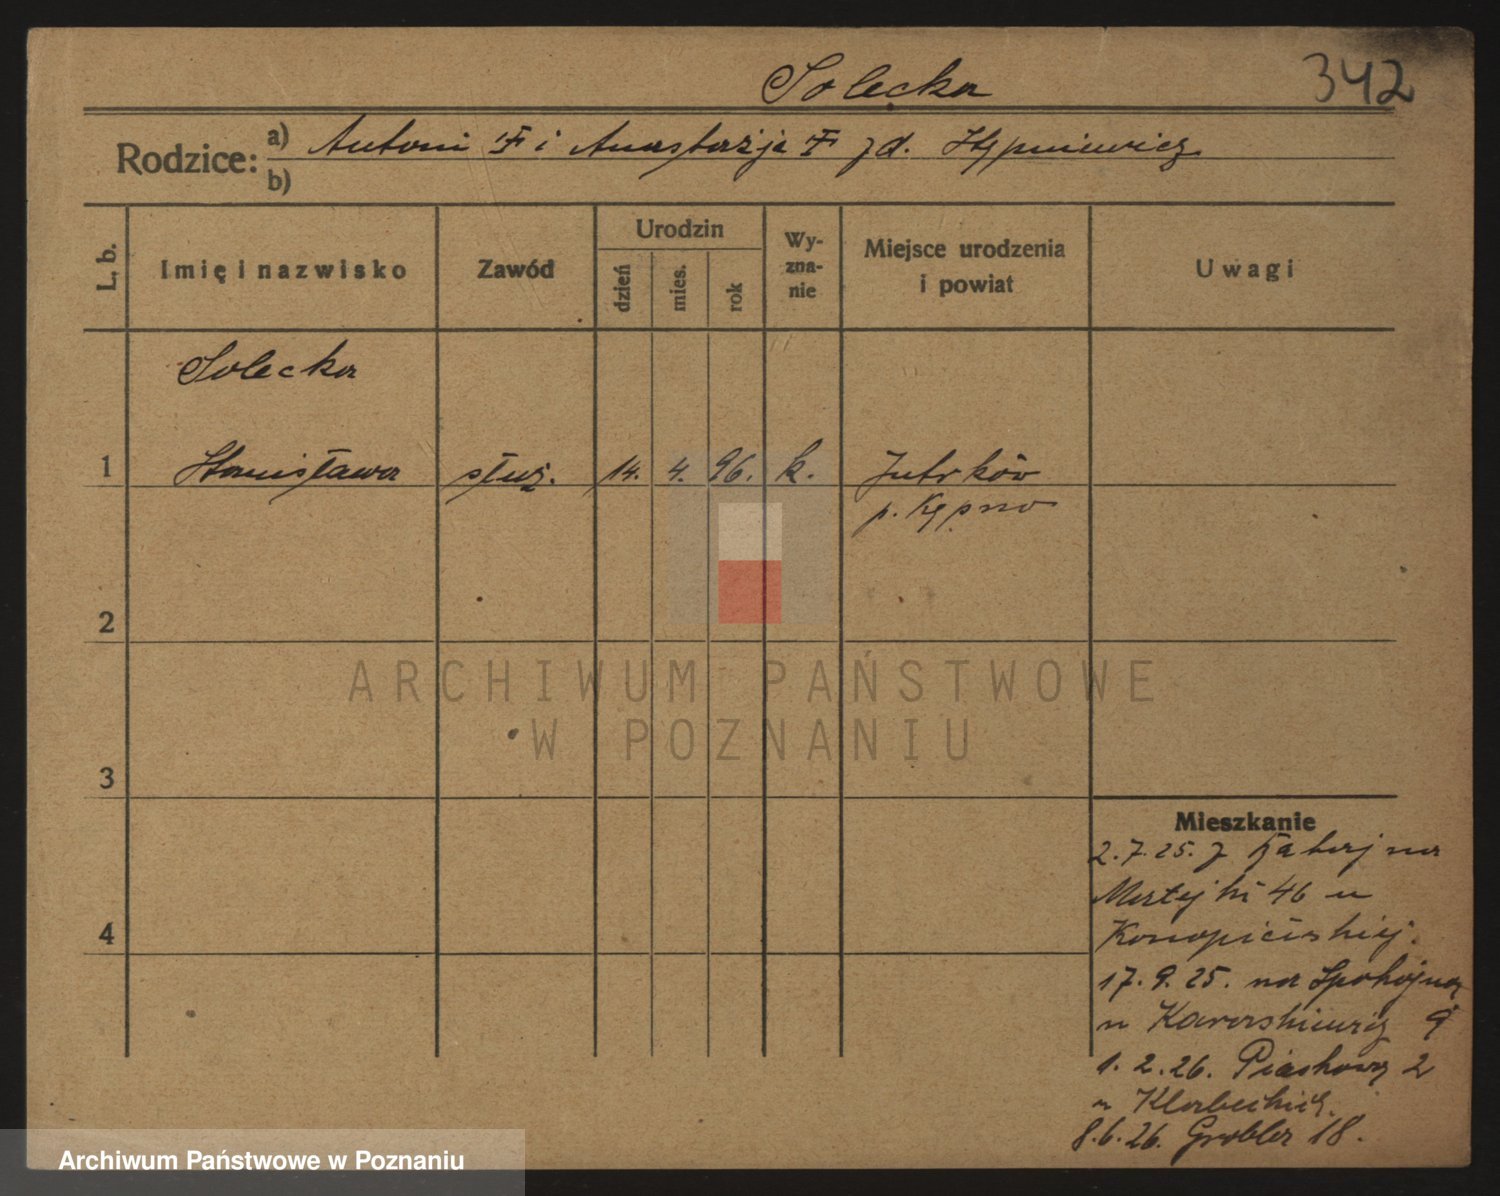 Solecka
342
Rodzice: a) Antoni i Anastazja zd. Stępniewicz
b)
L. b.
Imię i nazwisko
Zawód
Urodzin
dzień
mies.
rok
Wy-
zna-
nie
Miejsce urodzenia
i powiat
Uwagi
Solecka
1 Stanisława służ. 14. 4. 96. k. Jutrków
p. Kępno
2
3
4
ARCHIWUM PAŃSTWOWE
W POZNANIU
Mieszkanie
2.7.25. z na
Matejki 46 u
Konopińskiej.
17.9.25. na Spokojną
u 9
1.2.26. Piaskowa 2
u
8.6.26. Grobla 18.
Archiwum Państwowe w Poznaniu